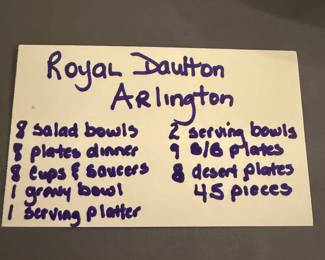 Royal Daulton
Arlington
8 salad bowls
8 plates dinner
8 cups & saucers
1 gravy bowl
1 serving platter
2 serving bowls
9 B/B plates
8 desert plates
45 pieces